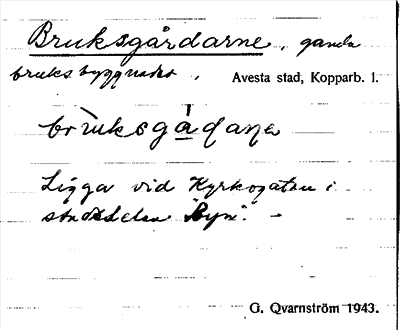 Bruksgårdarne, gamla
bruksbyggnader, Avesta stad, Kopparb. l.
brùksgǻḍaṇa
Ligga vid Kyrkogatan i
stadsdelen "Byn". -
G. Qvarnström 1943.